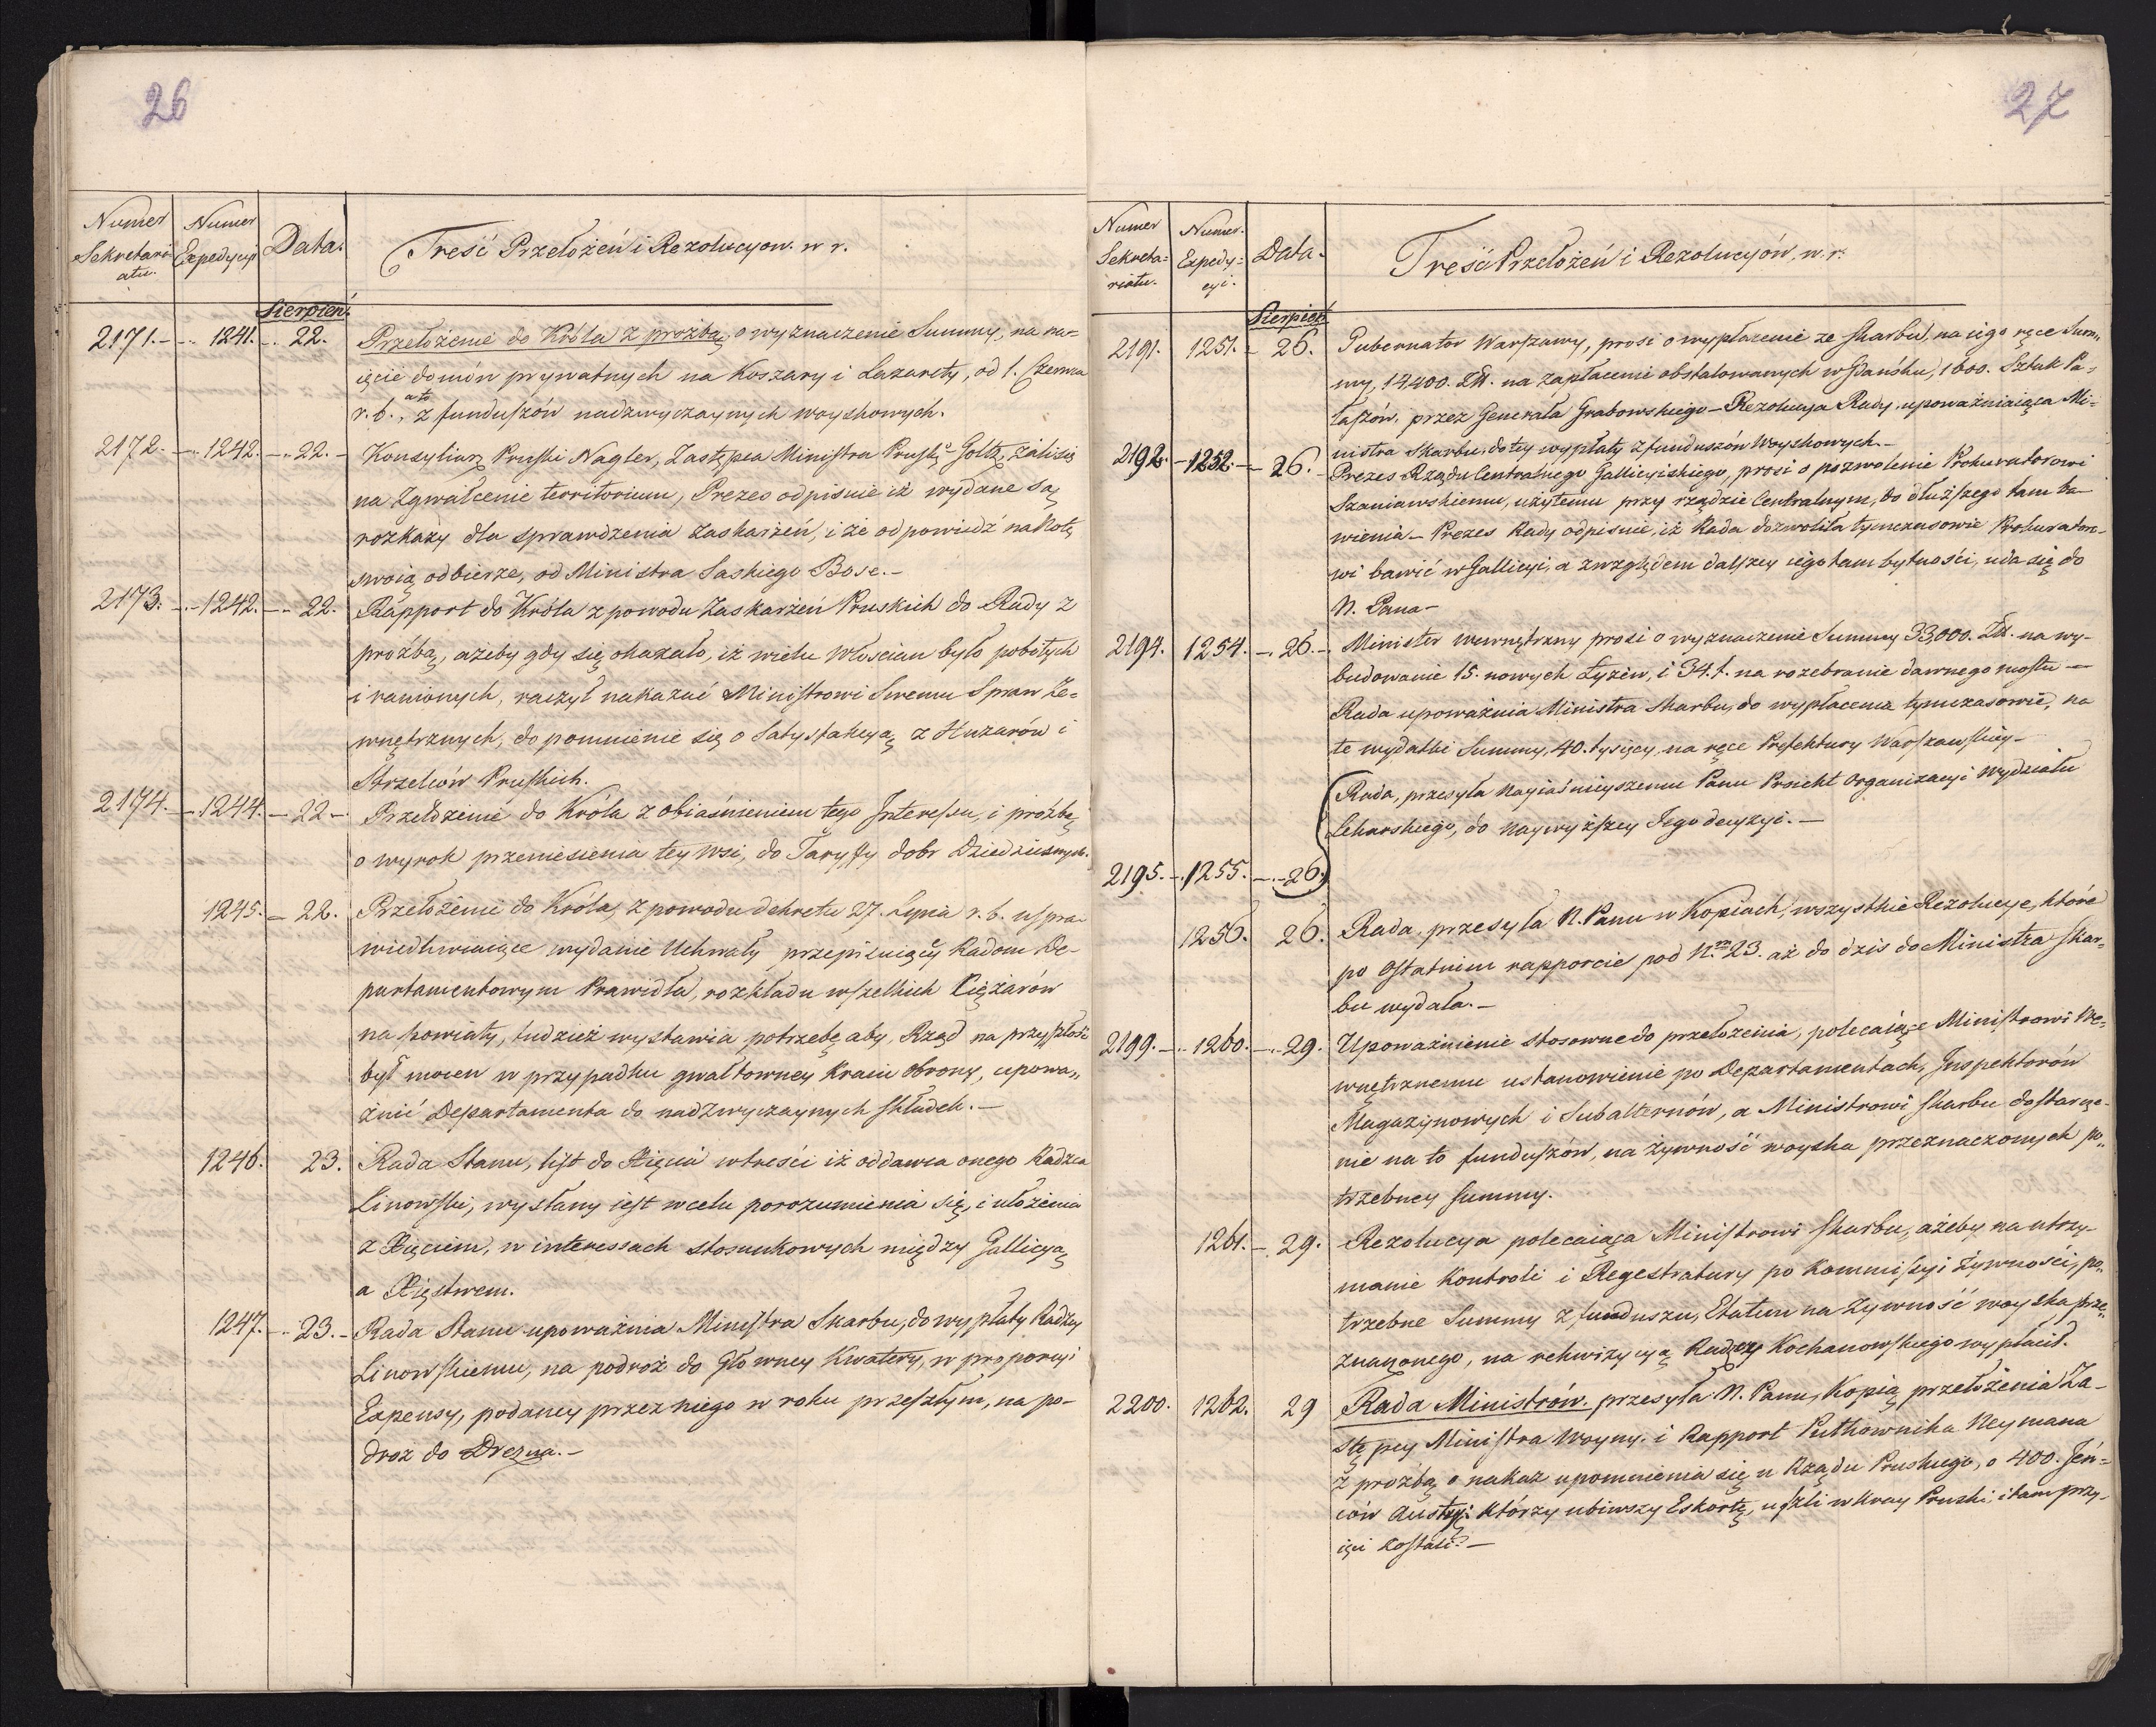 26
Numer Sekretariatu.
Numer Expedycyi
Data.
Treść Przełożeń i Rezolucyow. w r.
Sierpień.
2171. 1241. 22. Przełożenie do Króla z prożbą, o wyznaczenie Summy, na na=
ięcie domów prywatnych na Koszary i Lazarety, od 1. Czerwca
r. b., a to z funduszów nadzwyczaynych woyskowych.
2172. 1242. 22. Konsyliarz Pruski Nagler, Zastępca Ministra Prusk: Goltz, żali się
na Zgwałcenie territorium, Prezes odpisuie iż wydane są
rozkazy dla sprawdzenia zaskarżeń, i że odpowiedź na Notę
swoią odbierze, od Ministra Saskiego Bose.
2173. 1242. 22. Rapport do Króla z powodu Zaskarżeń Pruskich do Rady z
prożbą, ażeby gdy się okazało, iż wielu Włościan było pobitych
i ranionych, raczył nakazać Ministrowi Swemu Spraw Ze=
wnętrznych, do pomnienie się o Satysfakcyą z Huzarów i
Strzelców Pruskich.
2174. 1244. 22. Przełożenie do Króla z obiaśnieniem tego Interessu, i prożbą
o wyrok przeniesienia tey wsi, do Taryffy dobr Dziedzicznych.
1245. 22. Przełożenie do Króla, z powodu dekretu 27. Lipca r. b. uspra=
wiedliwiaiące wydanie Uchwały przepisuiącey Radom De=
partamentowym Prawidła, rozkładu wszelkich Ciężarów
na Powiaty, tudzież wystawia potrzebę aby, Rząd na przyszłość
był mocen w przypadku gwałtowney Kraiu Obrony, upowa=
żnić Departamenta do nadzwyczaynych składek.
1246. 23. Rada Stanu, list do Xięcia w treści iż oddawca onego Radzca
Linowski, wysłany iest w celu porozumienia się, i ułożenia
z Xięciem, w interessach stosunkowych między Gallicyą
a Xięstwem.
1247. 23. Rada Stanu upoważnia Ministra Skarbu, do wypłaty Radzcy
Linowskiemu, na podroż do Głowney Kwatery, w proporcyi
Expensy, podaney przez niego w roku przeszłym, na po-
droż do Drezna.
27
Numer Sekretariatu.
Numer. Expedycyi.
Data.
Treść Przełożeń i Rezolucyów, w. r.
Sierpień
2191. 1251. 26. Gubernator Warszawy, prosi o wypłacenie ze Skarbu, na iego ręce Sum=
my, 14400. Zł. na zapłacenie obstalowanych w Gdańsku, 1600. Sztuk Pa=
łaszów, przez Generała Grabowskiego – Rezolucya Rady, upoważniaiąca Mi=
nistra Skarbu, do tey wypłaty z funduszów Woyskowych.
2192. 1252. 26. Prezes Rządu Centralnego Gallicyiskiego, prosi o pozwolenie Prokuratorowi
Szaniawskiemu, użytemu przy rządzie Centralnym, do dłuższego tam ba-
wienia – Prezes Rady odpisuie, iż Rada dozwoliła tymczasowie Prokurator-
wi bawić w Gallicyi, a zwzględem dalszey iego tam bytności, uda się do
N. Pana
2194. 1254. 26. Minister wewnętrzny prosi o wyznaczenie Summy 33000. Zł. na wy-
budowanie 15. nowych Łyżew, i 34. t. na rozebranie dawnego mostu –
Rada upoważnia Ministra Skarbu, do wypłacenia tymczasowie, na
te wydatki Summy, 40. tysięcy, na ręce Prefektury Warszawskiey
Rada, przesyła Nayiaśnieyszemu Panu Proiekt Organizacyi Wydziału
Lekarskiego, do naywyższey Jego decyzyi.
2195. 1255. 26.
1256. 26. Rada, przesyła N. Panu w Kopiach, wszystkie Rezolucye, które
po Ostatnim rapporcie pod Nrem 23. aż do dziś do Ministra Skar=
bu wydała.
2199. 1260. 29. Upoważnienie stosowne do przełożenia, polecaiące Ministrowi We=
wnętrznemu ustanowienie po Departamentach, Inspektorów
Magazynowych i Subalternów, a Ministrowi Skarbu dostarcze-
nie na to funduszów, na żywność woyska przeznaczonych po=
trzebney summy.
1261. 29. Rezolucya polecaiąca Ministrowi Skarbu, ażeby na utrzy-
manie Kontroli i Regestratury po Kommissyi Żywności, po=
trzebne Summy z funduszu, Etatem na Żywność woyska prze=
znaczonego, na rekwizycyą Radzcy Kochanowskiego wypłacił.
2200. 1262. 29 Rada Ministrów. przesyła N. Panu, Kopią przełożenia Za-
stępcy Ministra Woyny. i Rapport Pułkownika Neymana
z prożbą o nakaz upomnienia się u Rządu Pruskiego, o 400. Jeń=
ców Austry: którzy ubiwszy Eskortę, uszli w Kray Pruski, i tam przy-
ięci zostali.